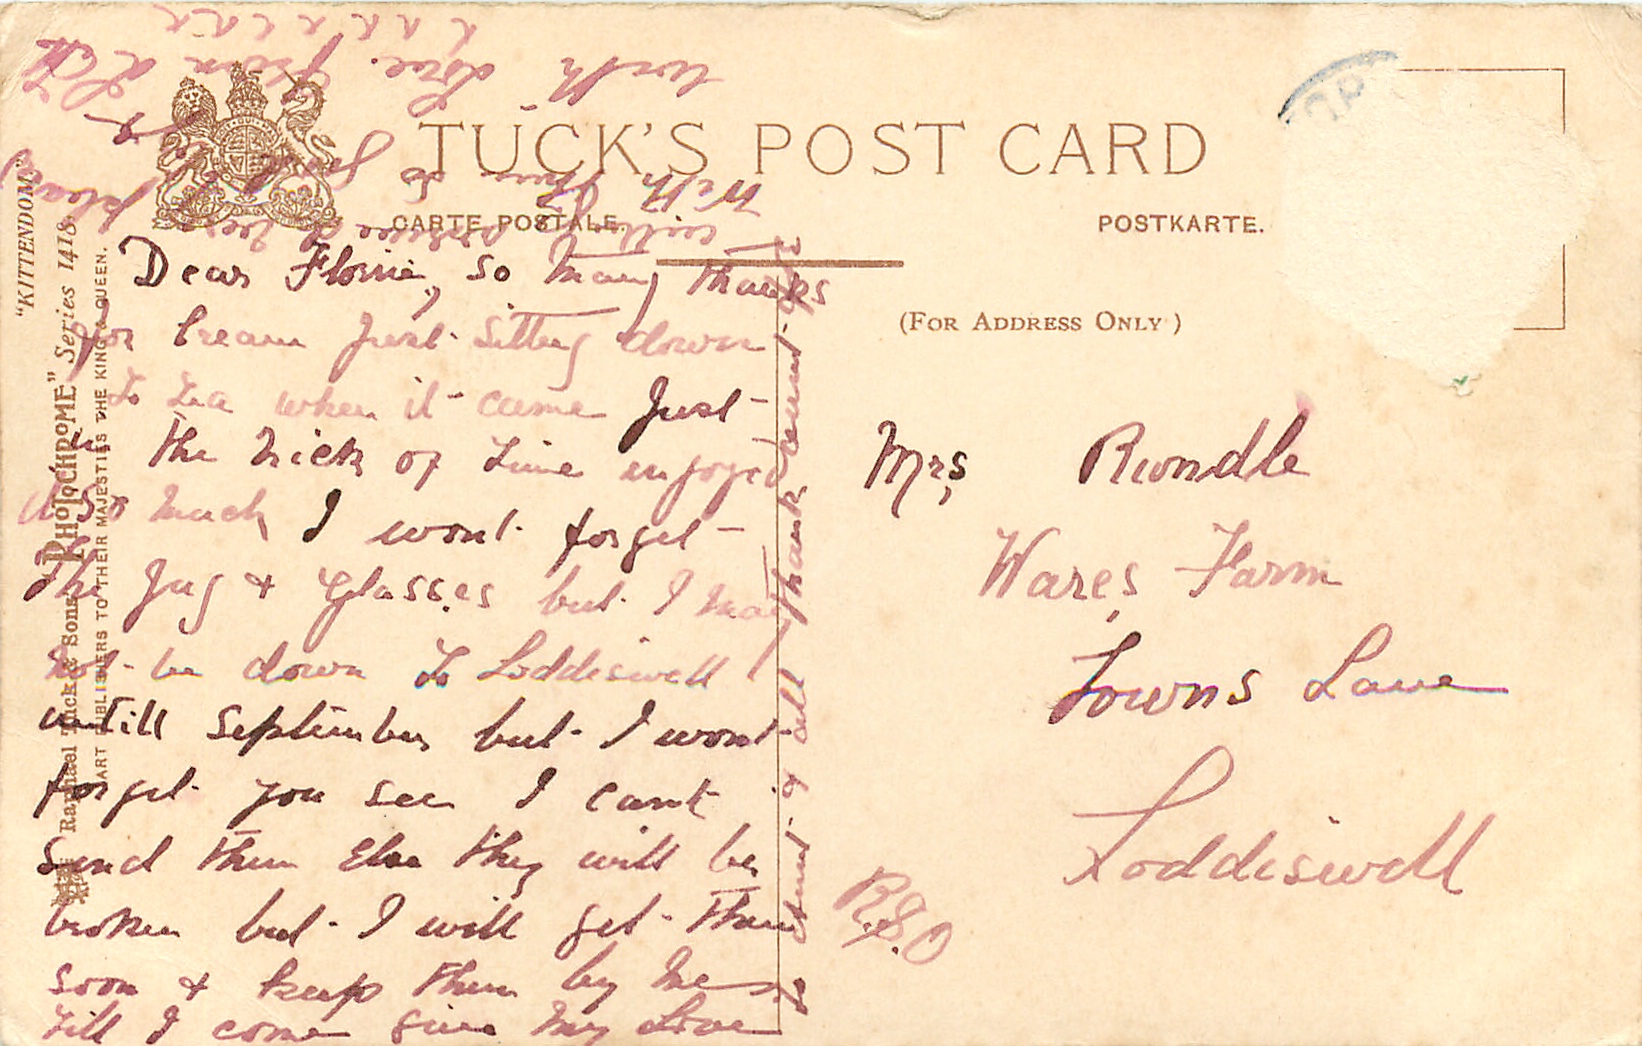 TUCK'S POST CARD
CARTE POSTALE.
POSTKARTE.
(FOR ADDRESS ONLY)
"KITTENDOM."
Raphael Tuck & Sons "PHOTOCHROME" Series 1418.
ART PUBLISHERS TO THEIR MAJESTIES THE KING & QUEEN.
Dear Florrie, so many thanks
for cream Just sitting down
to tea when it came Just
in the nick of time enjoyed
it so much I wont forget
the Jug & glasses but I may
not be down to Loddiswell
untill September but I wont
forget you see I cant
send them else they will be
broken but I will get them
soon & keep them by me
till I come give my Love
to & all thank
will you
with
with Love from
x x x x x x x
Mrs Rundle
Wares Farm
Towns Lane
Loddiswell
R.S.O